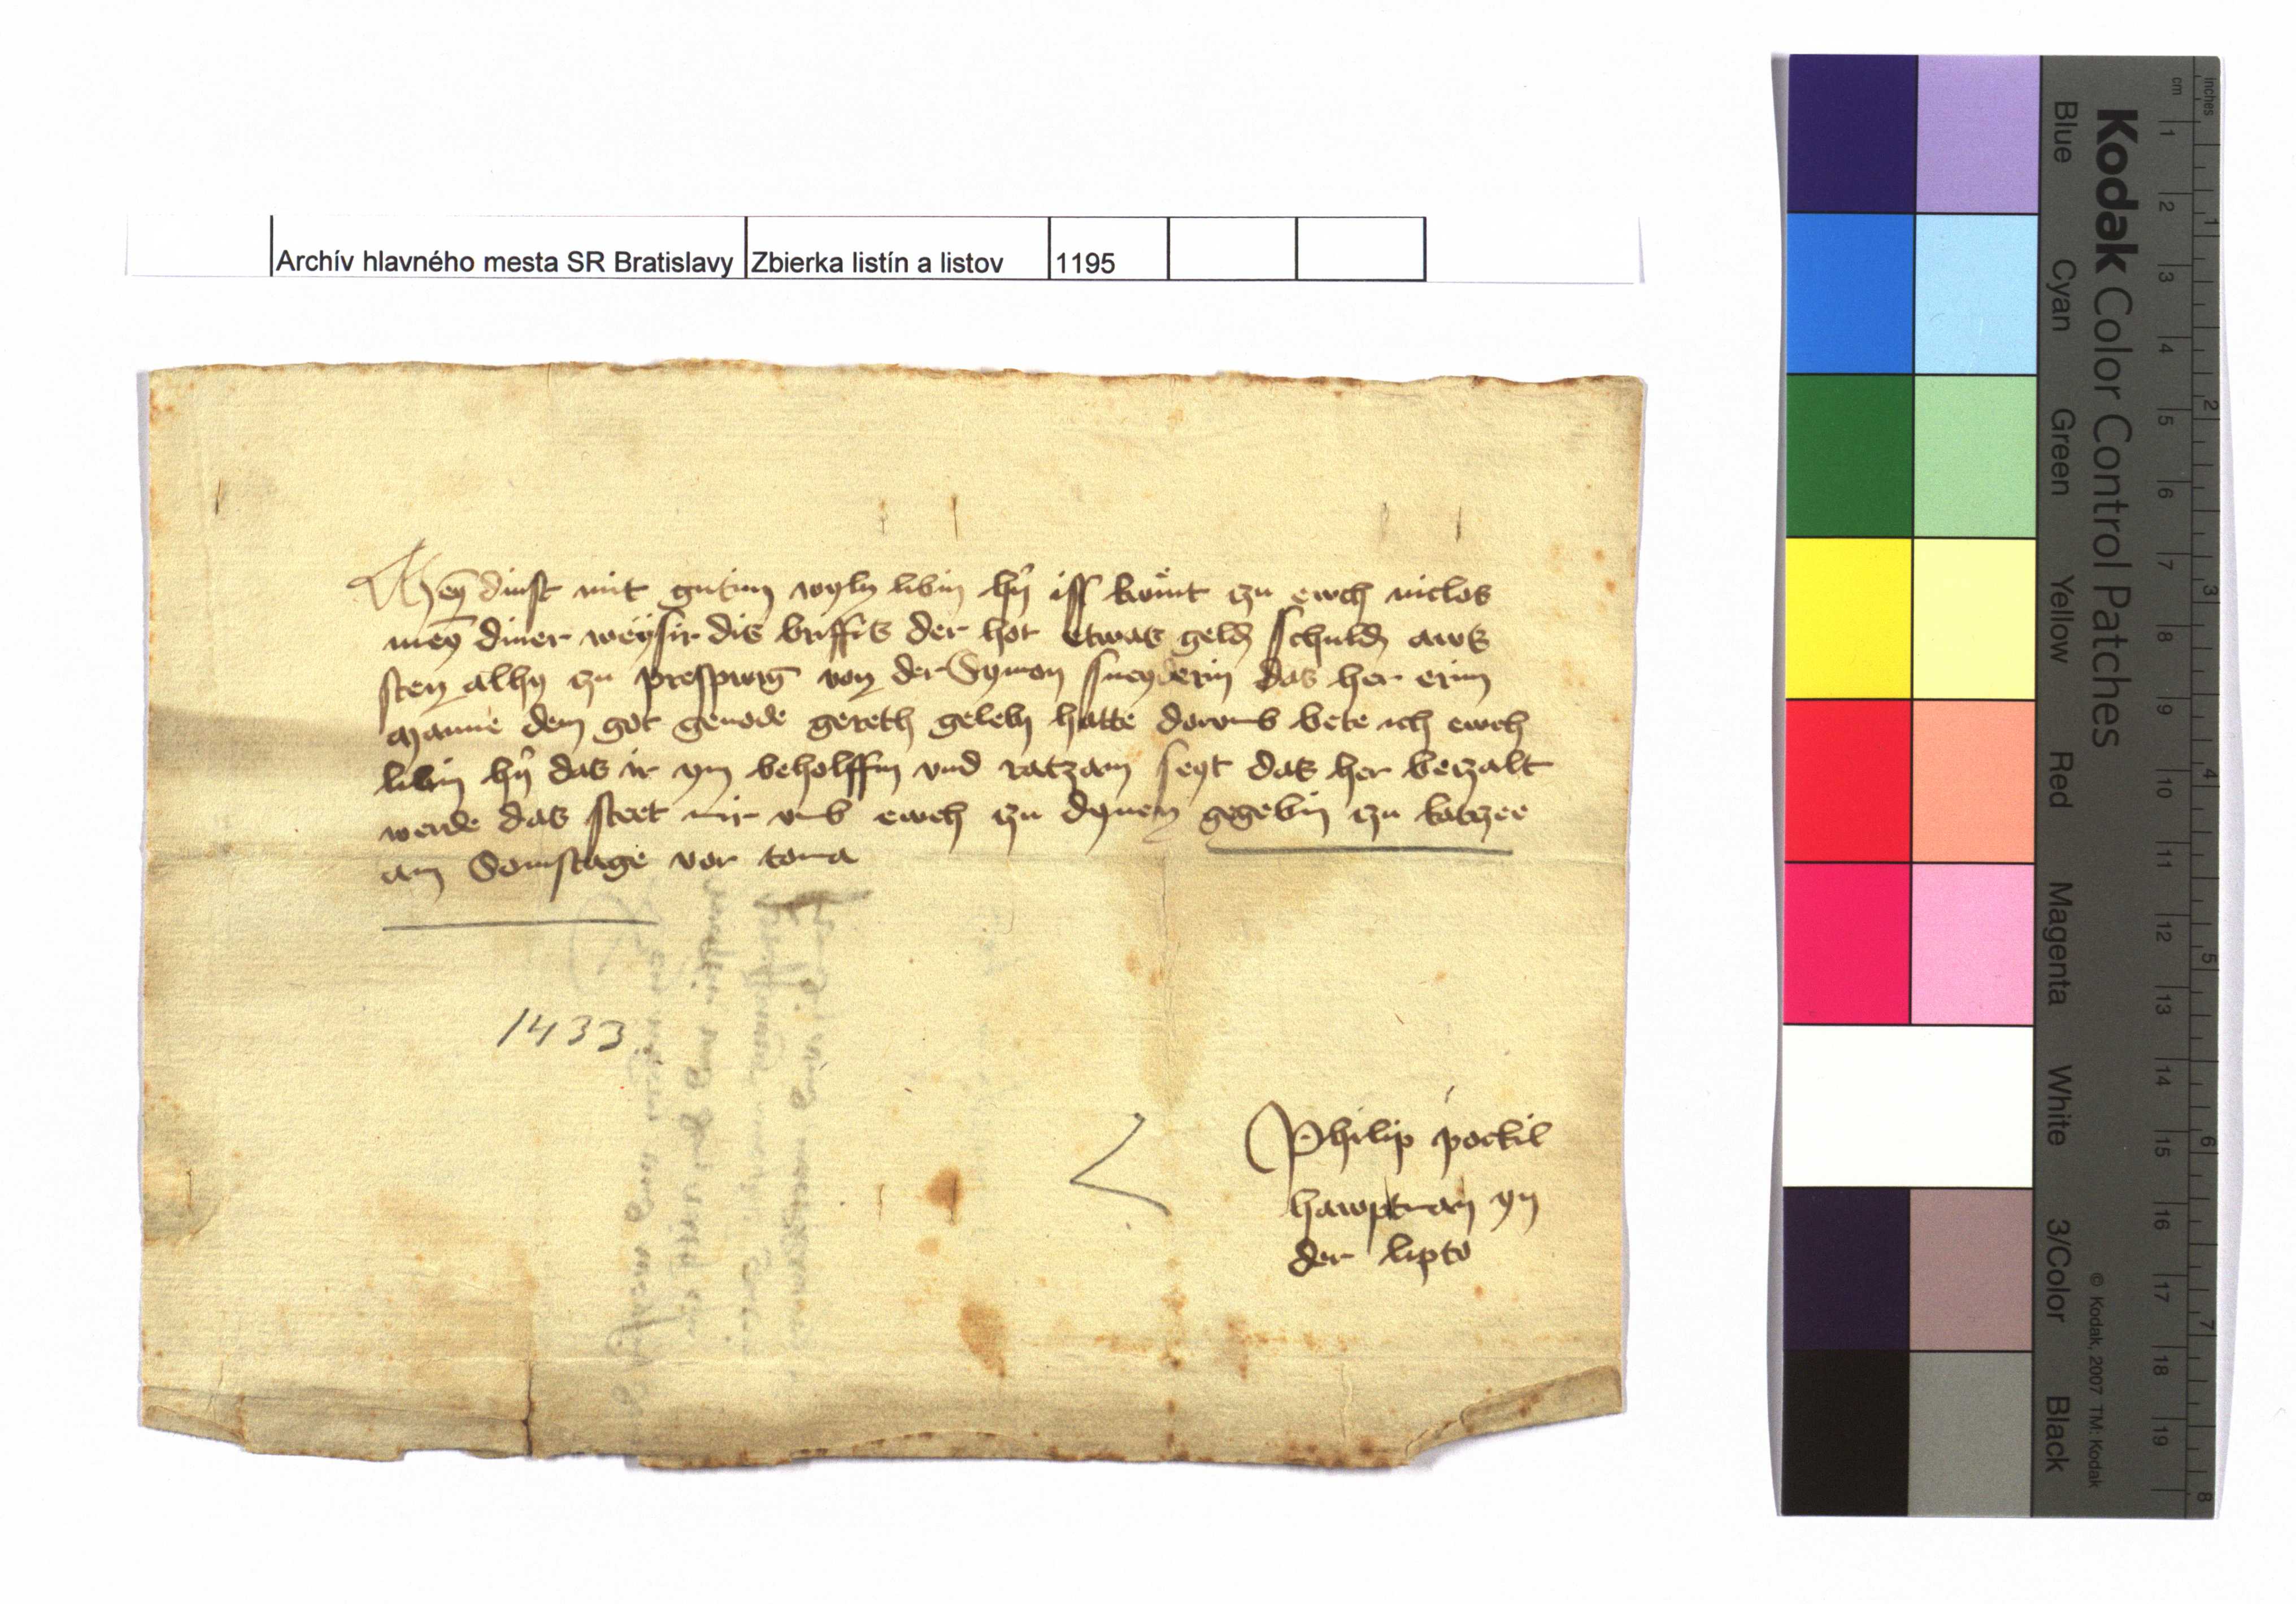 Archív hlavného mesta SR Bratislavy Zbierka listín a listov 1195
Meȳ dinst mit gutim wyln libin hr̄n iss komt czu ewch niclos
meȳ diner weysir dis briffis der hot etwas geld schuld aws
sten alhy czu prespurg von der Symon sneyderin das her erim
manne dem got genode gereth gelebn hatte dorvmb bete ich ewch
libin hr̄n das ir ym beholffin vnd ratzam seyt das her beczalt
werde das steet mir vmb ewch czu dynen gegebin czu totczee
am Somstage vor toma
1433
Philip pockil
hawptman yn
der lipto
Kodak Color Control Patches
Blue Cyan Green Yellow Red Magenta White 3/Color Black
© Kodak, 2007 TM: Kodak
cm 1 2 3 4 5 6 7 8 9 10 11 12 13 14 15 16 17 18 19
inches 1 2 3 4 5 6 7 8